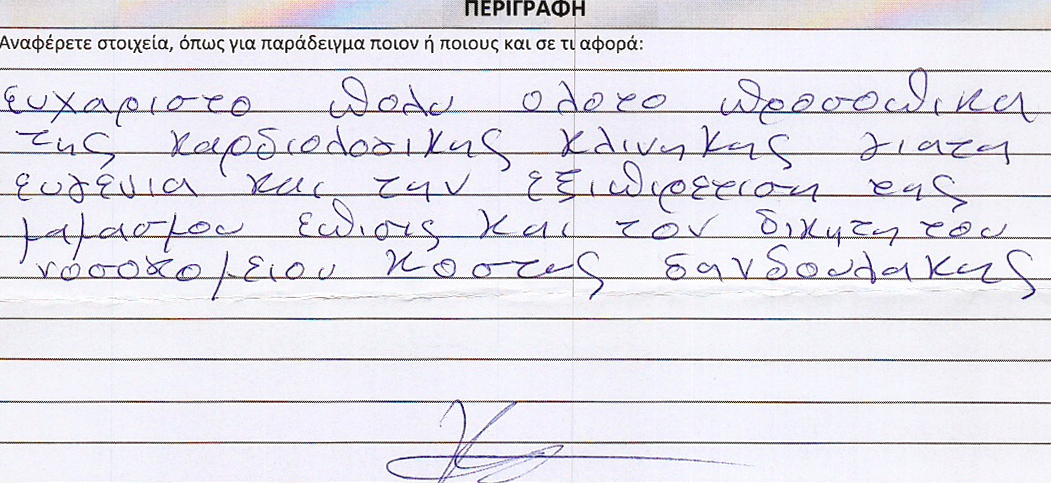 ΠΕΡΙΓΡΑΦΗ
Αναφέρετε στοιχεία, όπως για παράδειγμα ποιον ή ποιους και σε τι αφορά:
ευχαριστο πολυ ολοτο προσοπικα
της καρδιολογικης κλινηκης γιατη
ευγένια και την εξιπιρετιση της
μαμασμου επισις και τον δικητη του
νοσοκομειου Κοστης δανδουλακης